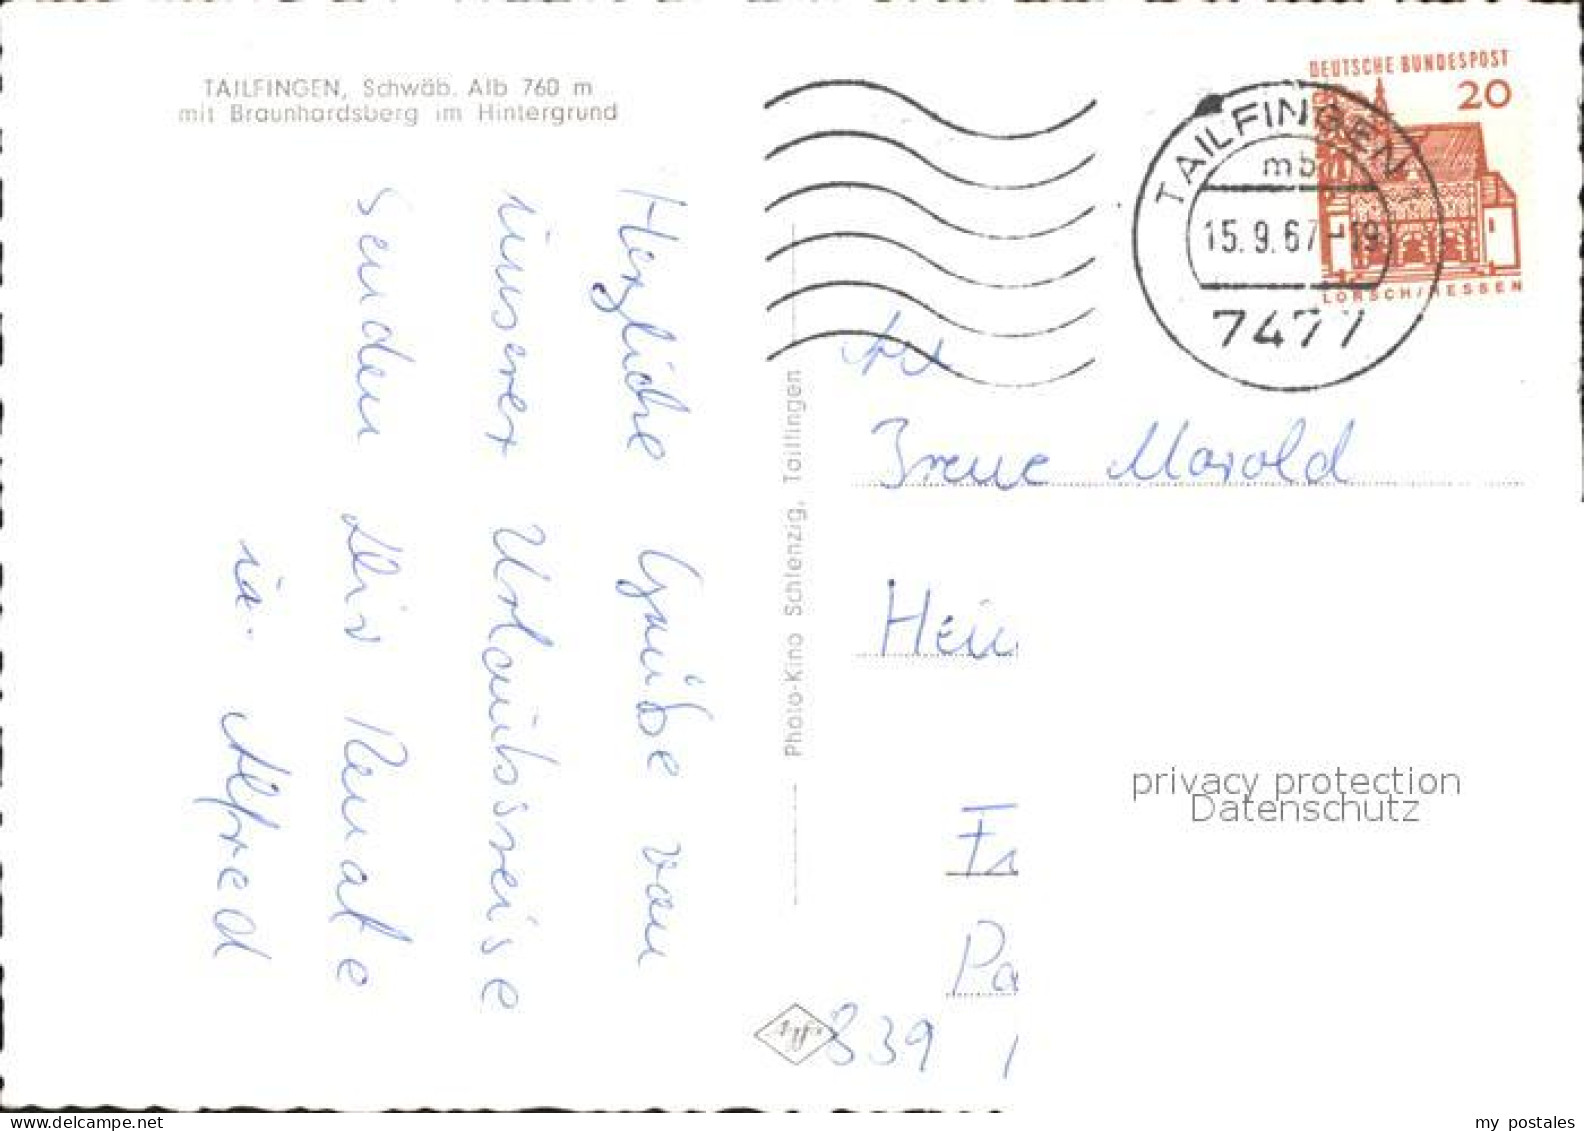 TAILFINGEN, Schwäb. Alb 760 m
mit Braunhardsberg im Hintergrund
Herzliche Grüße von
unserer Urlaubsreise
senden Dir Renate
u. Alfred
Photo-Kino Schlenzig, Tailfingen
DEUTSCHE BUNDESPOST
20
LORSCH/HESSEN
TAILFINGEN
mb
15.9.67-19
7477
Irene Marold
Hein
Pa
839
privacy protection
Datenschutz
my postales